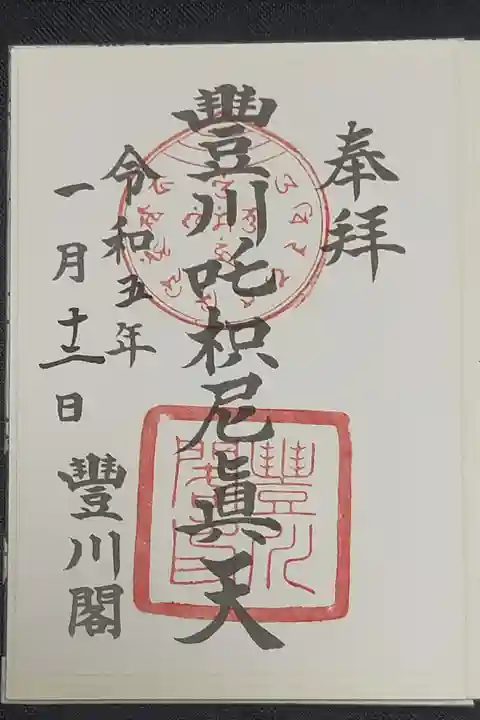 奉拝
豐川吒枳尼眞天
令和五年
一月十二日
豐川閣
豐川閣印